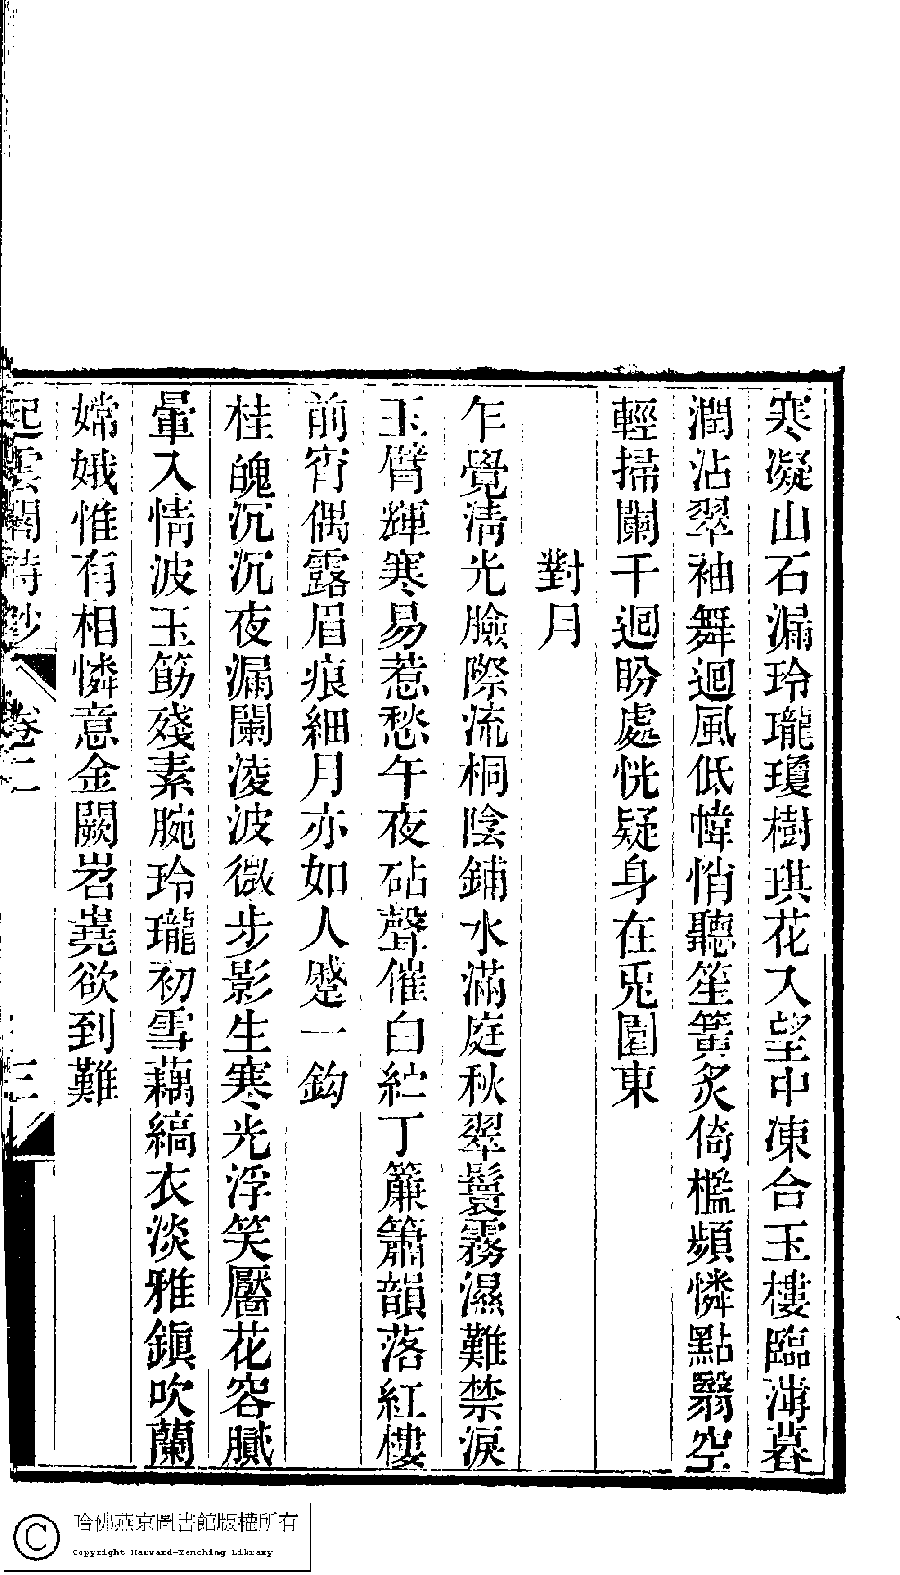 寒凝山石漏玲瓏瓊樹琪花入望中凍合玉樓臨薄暮
潤沾翠袖舞迴風低幃悄聽笙簧炙倚檻頻憐點翳空
輕掃闌干迴盼處恍疑身在兎園東
對月
乍覺清光臉際流桐陰鋪水滿庭秋翠鬟霧濕難禁淚
玉臂輝寒易惹愁午夜砧聲催白紵丁簾簫韻落紅樓
前宵偶露眉痕細月亦如人蹙一鈎
桂魄沉沉夜漏闌淩波微步影生寒光浮笑靨花容膩
暈入情波玉筯殘素腕玲瓏初雪藕縞衣淡雅鎮吹蘭
嫦娥惟有相憐意金闕岧嶤欲到難
起雲閣詩鈔 卷二 三
哈佛燕京圖書館版權所有
Copyright Harvard-Yenching Library